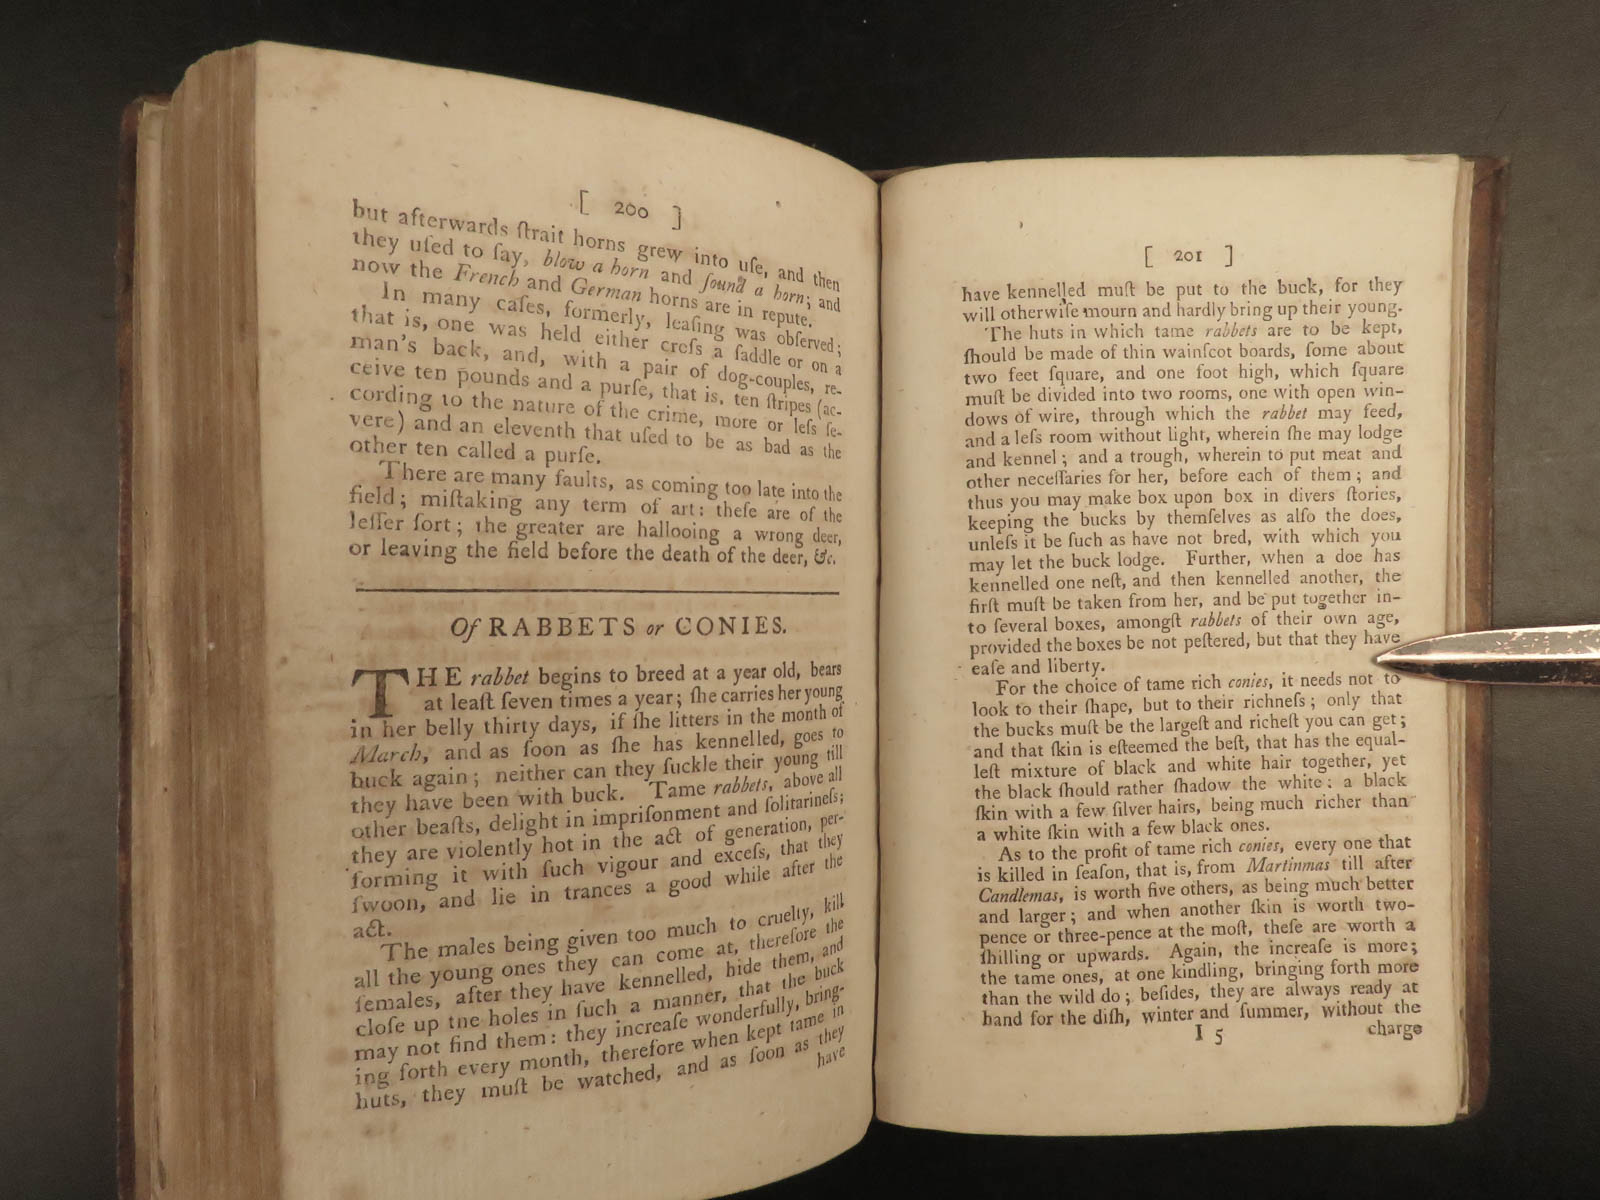 [ 200 ]
but afterwards ſtrait horns grew into uſe, and then
they uſed to ſay, blow a horn and ſound a horn; and
now the French and German horns are in repute.
In many caſes, formerly, leaſing was obſerved;
that is, one was held either croſs a ſaddle or on a
man's back, and, with a pair of dog-couples, re-
ceive ten pounds and a purſe, that is, ten ſtripes (ac-
cording to the nature of the crime, more or leſs ſe-
vere) and an eleventh that uſed to be as bad as the
other ten called a purſe.
There are many faults, as coming too late into the
field; miſtaking any term of art: theſe are of the
leſſer ſort; the greater are hallooing a wrong deer,
or leaving the field before the death of the deer, &c.
Of RABBETS or CONIES.
THE rabbet begins to breed at a year old, bears
at leaſt ſeven times a year; ſhe carries her young
in her belly thirty days, if ſhe litters in the month of
March, and as ſoon as ſhe has kennelled, goes to
buck again; neither can they ſuckle their young till
they have been with buck. Tame rabbets, above all
other beaſts, delight in impriſonment and ſolitarineſs;
they are violently hot in the act of generation, per-
forming it with ſuch vigour and exceſs, that they
ſwoon, and lie in trances a good while after the
act.
The males being given too much to cruelty, kill
all the young ones they can come at, therefore the
females, after they have kennelled, hide them, and
cloſe up tne holes in ſuch a manner, that the buck
may not find them: they increaſe wonderfully, bring-
ing forth every month, therefore when kept tame in
huts, they muſt be watched, and as ſoon as they
have
[ 201 ]
have kennelled muſt be put to the buck, for they
will otherwiſe mourn and hardly bring up their young.
The huts in which tame rabbets are to be kept,
ſhould be made of thin wainſcot boards, ſome about
two feet ſquare, and one foot high, which ſquare
muſt be divided into two rooms, one with open win-
dows of wire, through which the rabbet may feed,
and a leſs room without light, wherein ſhe may lodge
and kennel; and a trough, wherein to put meat and
other neceſſaries for her, before each of them; and
thus you may make box upon box in divers ſtories,
keeping the bucks by themſelves as alſo the does,
unleſs it be ſuch as have not bred, with which you
may let the buck lodge. Further, when a doe has
kennelled one neſt, and then kennelled another, the
firſt muſt be taken from her, and be put together in-
to ſeveral boxes, amongſt rabbets of their own age,
provided the boxes be not peſtered, but that they have
eaſe and liberty.
For the choice of tame rich conies, it needs not to
look to their ſhape, but to their richneſs; only that
the bucks muſt be the largeſt and richeſt you can get;
and that ſkin is eſteemed the beſt, that has the equal-
leſt mixture of black and white hair together, yet
the black ſhould rather ſhadow the white: a black
ſkin with a few ſilver hairs, being much richer than
a white ſkin with a few black ones.
As to the profit of tame rich conies, every one that
is killed in ſeaſon, that is, from Martinmas till after
Candlemas, is worth five others, as being much better
and larger; and when another ſkin is worth two-
pence or three-pence at the moſt, theſe are worth a
ſhilling or upwards. Again, the increaſe is more;
the tame ones, at one kindling, bringing forth more
than the wild do; beſides, they are always ready at
hand for the diſh, winter and ſummer, without the
I 5 charge